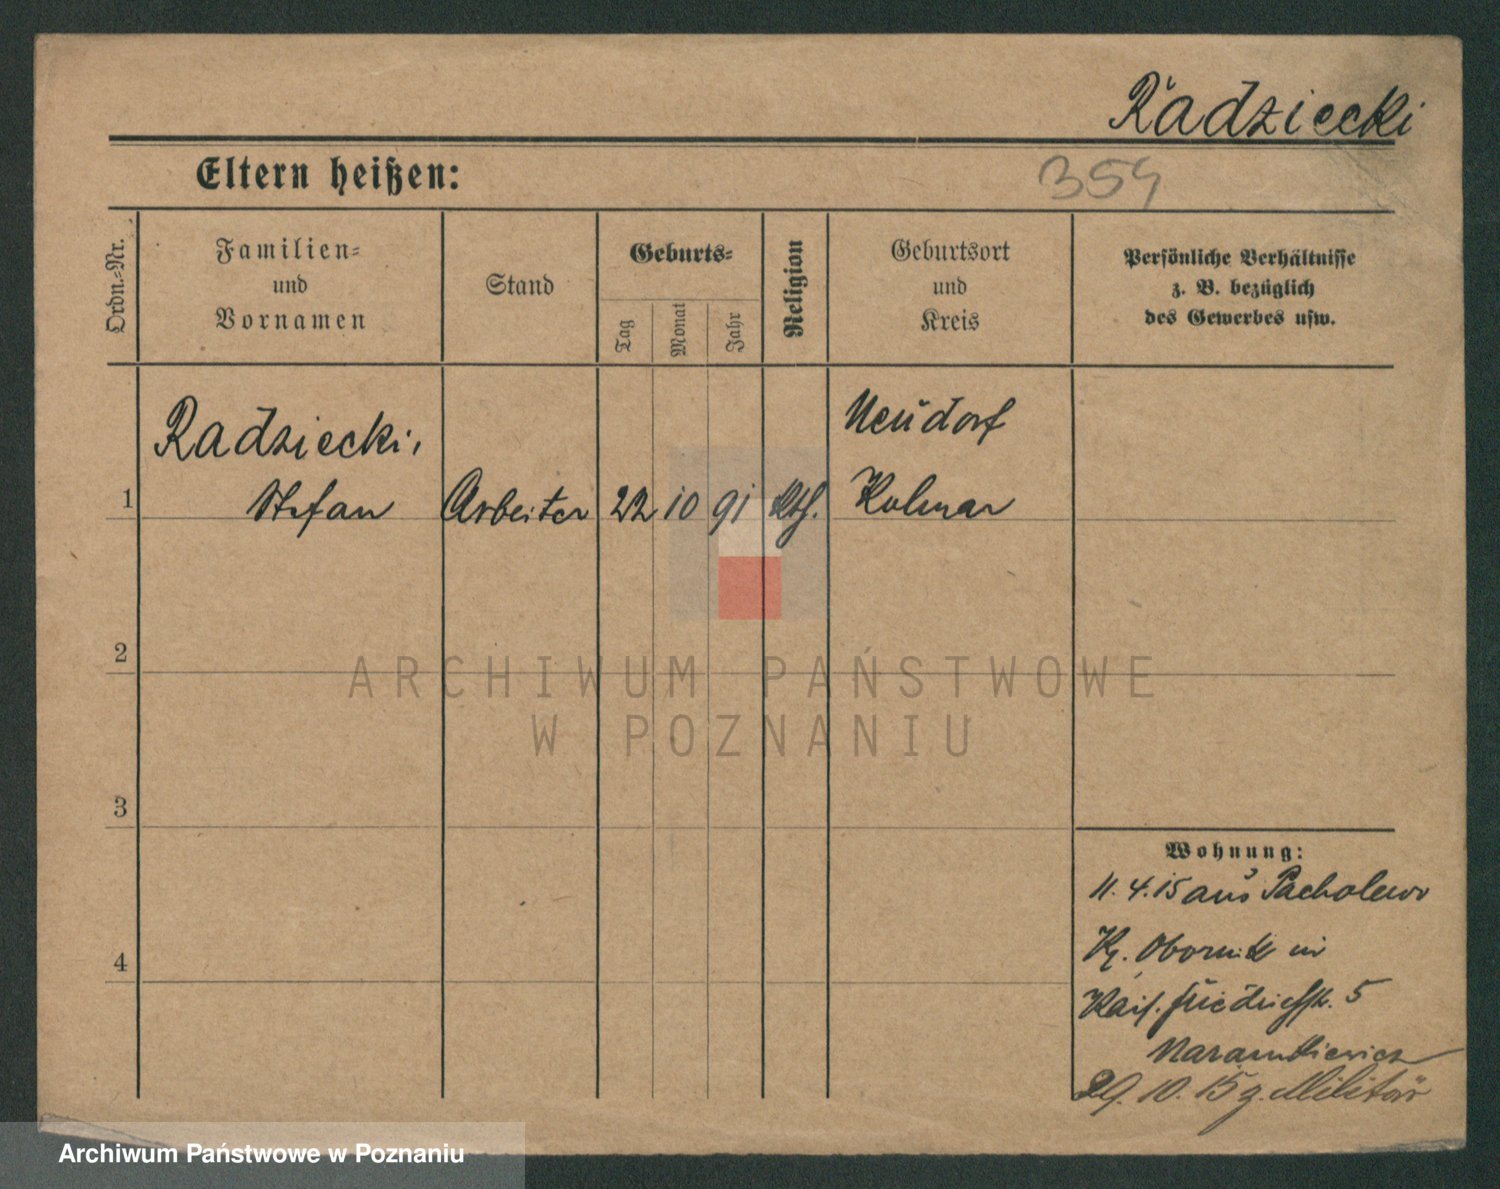 Radziecki
Eltern heißen:
354
Ordn.-Nr.
Familien-
und
Vornamen
Stand
Geburts-
Tag
Monat
Jahr
Religion
Geburtsort
und
Kreis
Persönliche Verhältnisse
z. B. bezüglich
des Gewerbes usw.
Radziecki,
1 Stefan Arbeiter 22 10 91 Kth.
Neudorf
Kolmar
2
3
4
Wohnung:
11.4.15 aus Pacholewo
Kr. Obornik in
Kais. Friedrichstr. 5
29.10.15 z. Militär
ARCHIWUM PAŃSTWOWE
W POZNANIU
Archiwum Państwowe w Poznaniu